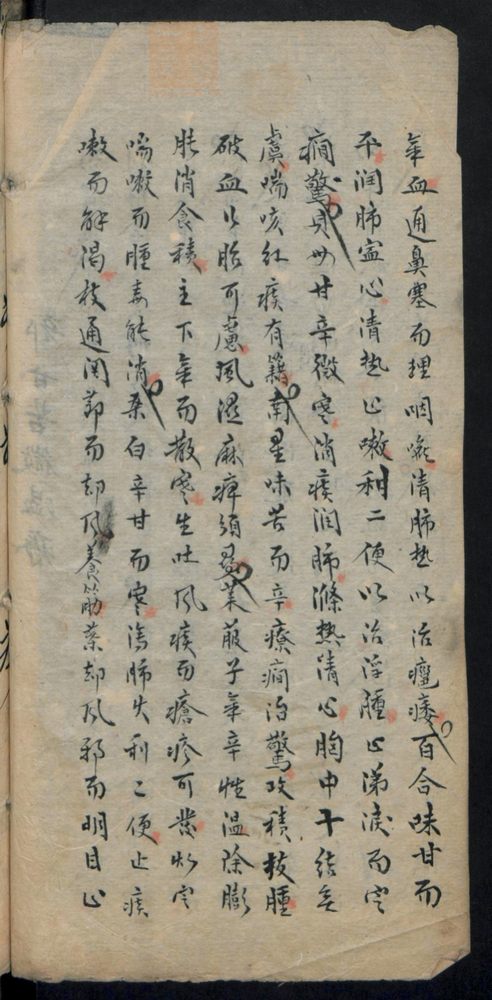 氣血通鼻塞而理咽喉清肺热以治痿百合味甘而
平润肺寍心清热止嗽利二便以治浮腫止涕淚而定
癎驚貝母甘辛微寒消痰润肺滌热清心胸中干结無
虞喘咳红痰有籍南星味苦而辛療癎治驚攻積拔腫
破血以胎可慮風濕麻痺須萊菔子氣辛性温除膨
脹消食積主下氣而散寒生吐风痰而瘡疹可發炒定
喘嗽而腫毒能消桑白辛甘而寒瀉肺火利二便止痰
嗽而解渴枝通関節而却风養筋葉却风邪而明目止